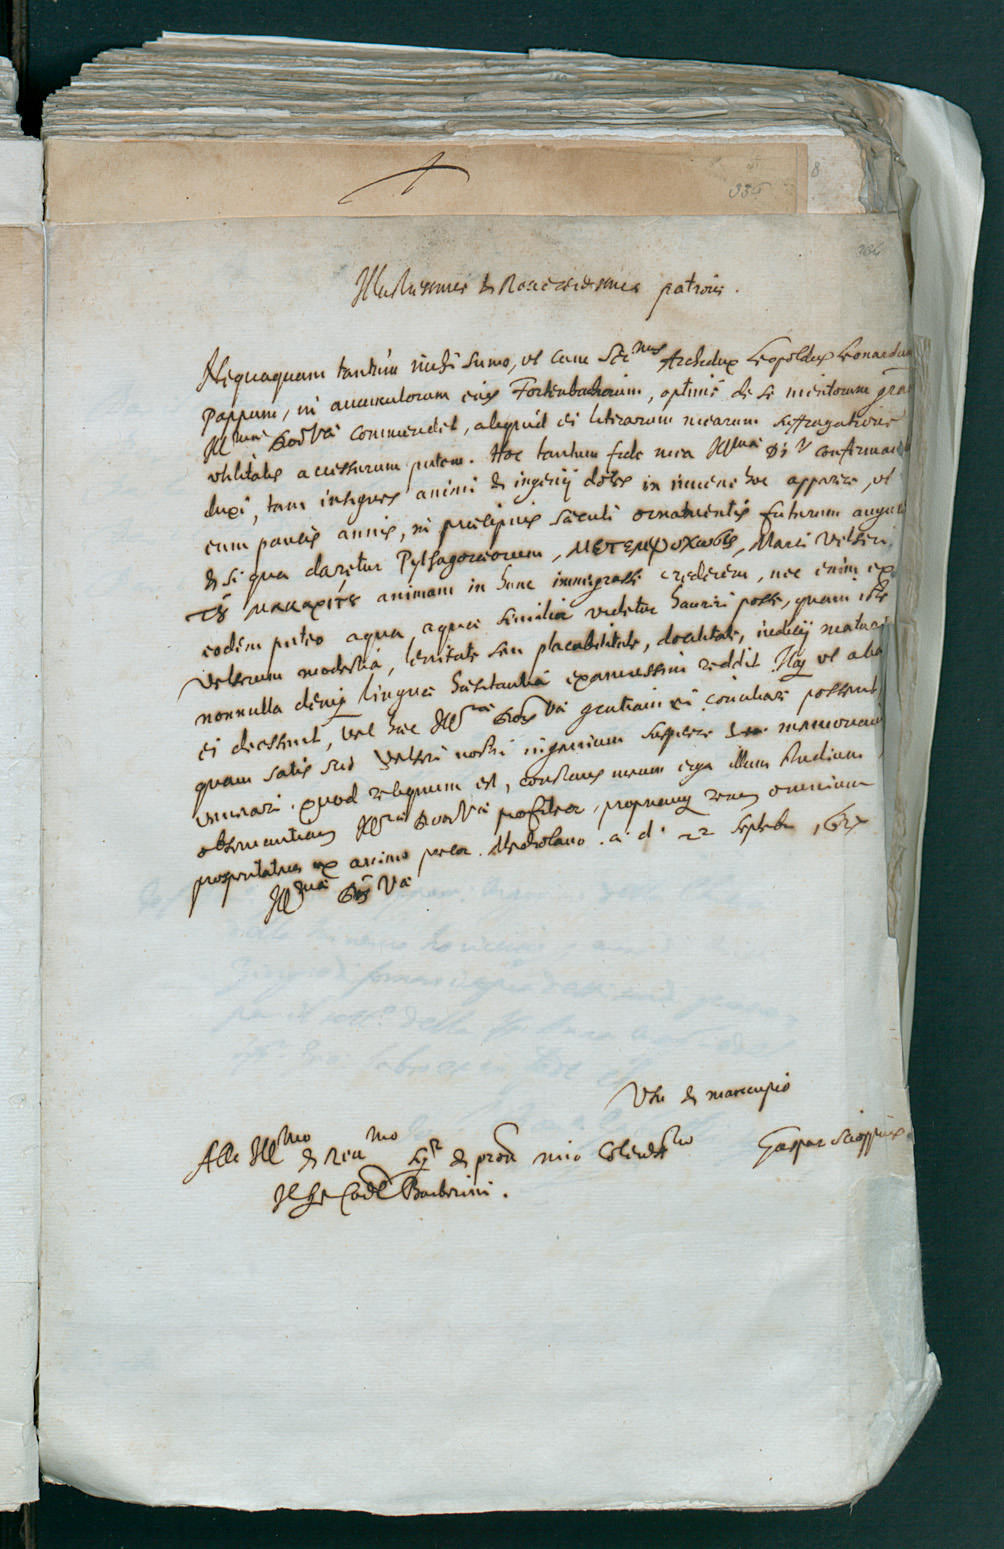 336
8
336
Illustrissime & Reverendissime patrone.
Nequaquam tantum mihi sumo, ut cum Ser.mus Archidux Leopoldus Leonardum
Pappum, in avunculorum eius Fortenbachiorum, optime de se meritorum gra
Ill.mae Dom. V.ae commendet, aliquid ei literarum mearum suffragatione
utilitatis accessurum putem. Hoc tantum fide mea Ill.mae D. V. confirmandum
duxi, tam insignes animi & ingenij dotes in iuvene hoc apparere, ut
eum paucis annis, in praecipuis saeculi ornamentis futurum augurer
& si qua daretur Pythagoreorum, μετεμψύχωσις, Marci Velseri
τοῦ μακαρίτου animam in hunc immigrasse crederem, nec enim ex
eodem puteo aqua, aquae similior videtur hauriri posse, quam iste
Velserum modestia, lenitate seu placabilitate, docilitate, iudicij maturi
nonnulla denique linguae haesitantia examussim reddit. Itaque ut alia
ei deessent, vel hoc Ill.mae D. V.ae gratiam ei conciliare possent,
quam satis scio Velseri nostri ingenium suspicere memoriam
venerari. Quod reliquum est, constans meum erga illam studium
observantiam Ill.mae D. V.ae profiteor, propriamque rerum omnium
prosperitatem ex animo precor. Mediolano. a. d. 22 Septebr 1627
Ill.mae D. V.ae
Usu & mancupio
Gaspar Scioppius
Allo Ill.mo & Rev.mo Sig.r & pron mio Colend.mo
Il Sr Card.l Barberini.